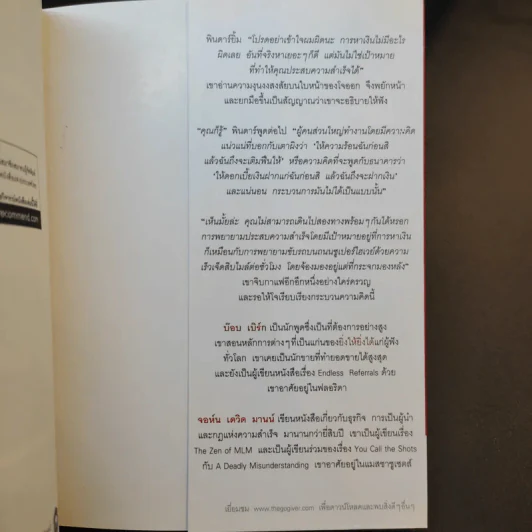 พินดาร์ยิ้ม “โปรดอย่าเข้าใจผมผิดนะ การหาเงินไม่มีอะไร
ผิดเลย อันที่จริงหาเยอะๆก็ดี แต่มันไม่ใช่เป้าหมาย
ที่ทำให้คุณประสบความสำเร็จได้”
เขาอ่านความงุนงงสงสัยบนใบหน้าของโจออก จึงพยักหน้า
และยกมือขึ้นเป็นสัญญาณว่าเขาจะอธิบายให้ฟัง
“คุณก็รู้” พินดาร์พูดต่อไป “ผู้คนส่วนใหญ่ทำงานโดยมีความคิด
แน่วแน่ที่บอกกับเตาผิงว่า ‘ให้ความร้อนฉันก่อนสิ
แล้วฉันถึงจะเติมฟืนให้’ หรือความคิดที่จะพูดกับธนาคารว่า
‘ให้ดอกเบี้ยเงินฝากแก่ฉันก่อนสิ แล้วฉันถึงจะฝากเงิน’
และแน่นอน กระบวนการมันไม่ได้เป็นแบบนั้น”
“เห็นมั้ยล่ะ คุณไม่สามารถเดินไปสองทางพร้อมๆกันได้หรอก
การพยายามประสบความสำเร็จโดยมีเป้าหมายอยู่ที่การหาเงิน
ก็เหมือนกับการพยายามขับรถบนถนนซูเปอร์ไฮเวย์ด้วยความ
เร็วเจ็ดสิบไมล์ต่อชั่วโมง โดยจ้องมองอยู่แต่ที่กระจกมองหลัง”
เขาจิบกาแฟอีกอึกหนึ่งอย่างใคร่ครวญ
และรอให้โจเรียบเรียงกระบวนความคิดนี้
บ๊อบ เบิร์ก เป็นนักพูดซึ่งเป็นที่ต้องการอย่างสูง
เขาสอนหลักการต่างๆที่เป็นแก่นของยิ่งให้ยิ่งได้แก่ผู้ฟัง
ทั่วโลก เขาเคยเป็นนักขายที่ทำยอดขายได้สูงสุด
และยังเป็นผู้เขียนหนังสือเรื่อง Endless Referrals ด้วย
เขาอาศัยอยู่ในฟลอริดา
จอห์น เดวิด มานน์ เขียนหนังสือเกี่ยวกับธุรกิจ การเป็นผู้นำ
และกฎแห่งความสำเร็จ มานานกว่ายี่สิบปี เขาเป็นผู้เขียนเรื่อง
The Zen of MLM และเป็นผู้เขียนร่วมของเรื่อง You Call the Shots
กับ A Deadly Misunderstanding เขาอาศัยอยู่ในแมสซาชูเซตส์
เยี่ยมชม www.thegogiver.com เพื่อดาวน์โหลดและพบสิ่งดีๆอื่นๆ